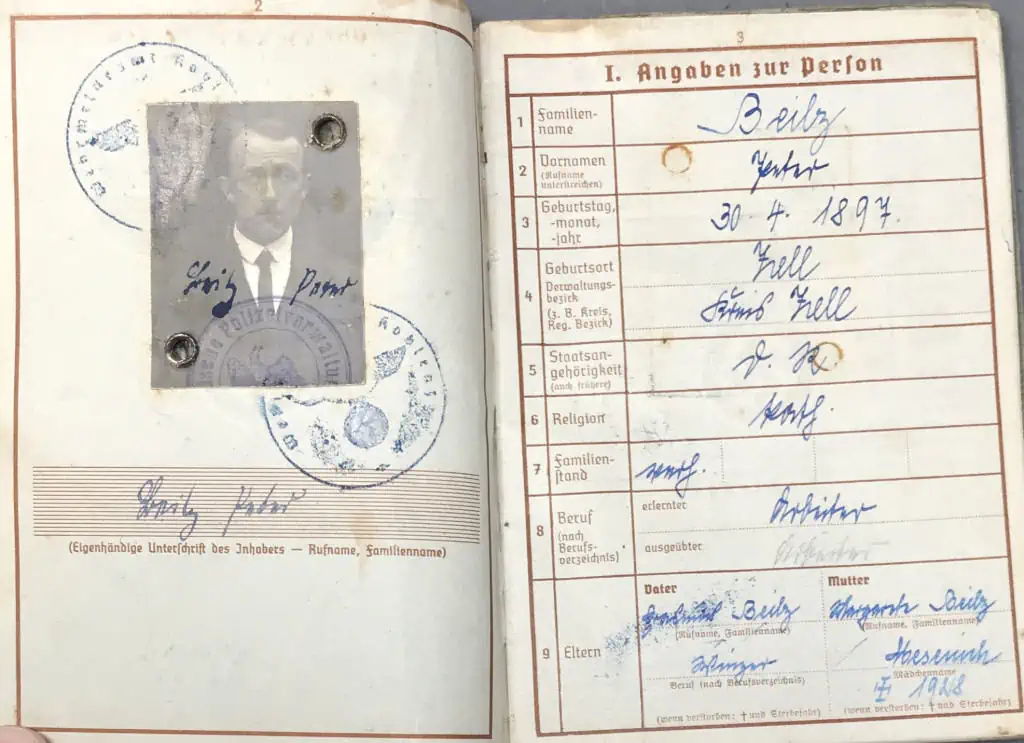 2
Wehrmeldeamt Kobl
Beilz Peter
Polizeiverwaltung
Koblenz
Beilz Peter
(Eigenhändige Unterschrift des Inhabers — Rufname, Familienname)
3
I. Angaben zur Person
1 Familien-
name
Beilz
2 Vornamen
(Rufname
unterstreichen)
Peter
3 Geburtstag,
-monat,
-jahr
30. 4. 1897.
4 Geburtsort
Verwaltungs-
bezirk
(z. B. Kreis,
Reg. Bezirk)
Zell
Kreis Zell
5 Staatsan-
gehörigkeit
(auch frühere)
D. R.
6 Religion
kath.
7 Familien-
stand
verh.
8 Beruf
(nach
Berufs-
verzeichnis)
erlernter
Arbeiter
ausgeübter
Arbeiter
9 Eltern
Vater
Beilz
(Rufname, Familienname)
Winzer
Beruf (nach Berufsverzeichnis)
(wenn verstorben: † und Sterbejahr)
Mutter
Margarete Beilz
(Rufname, Familienname)
Mesenich
Mädchenname
† 1928
(wenn verstorben: † und Sterbejahr)